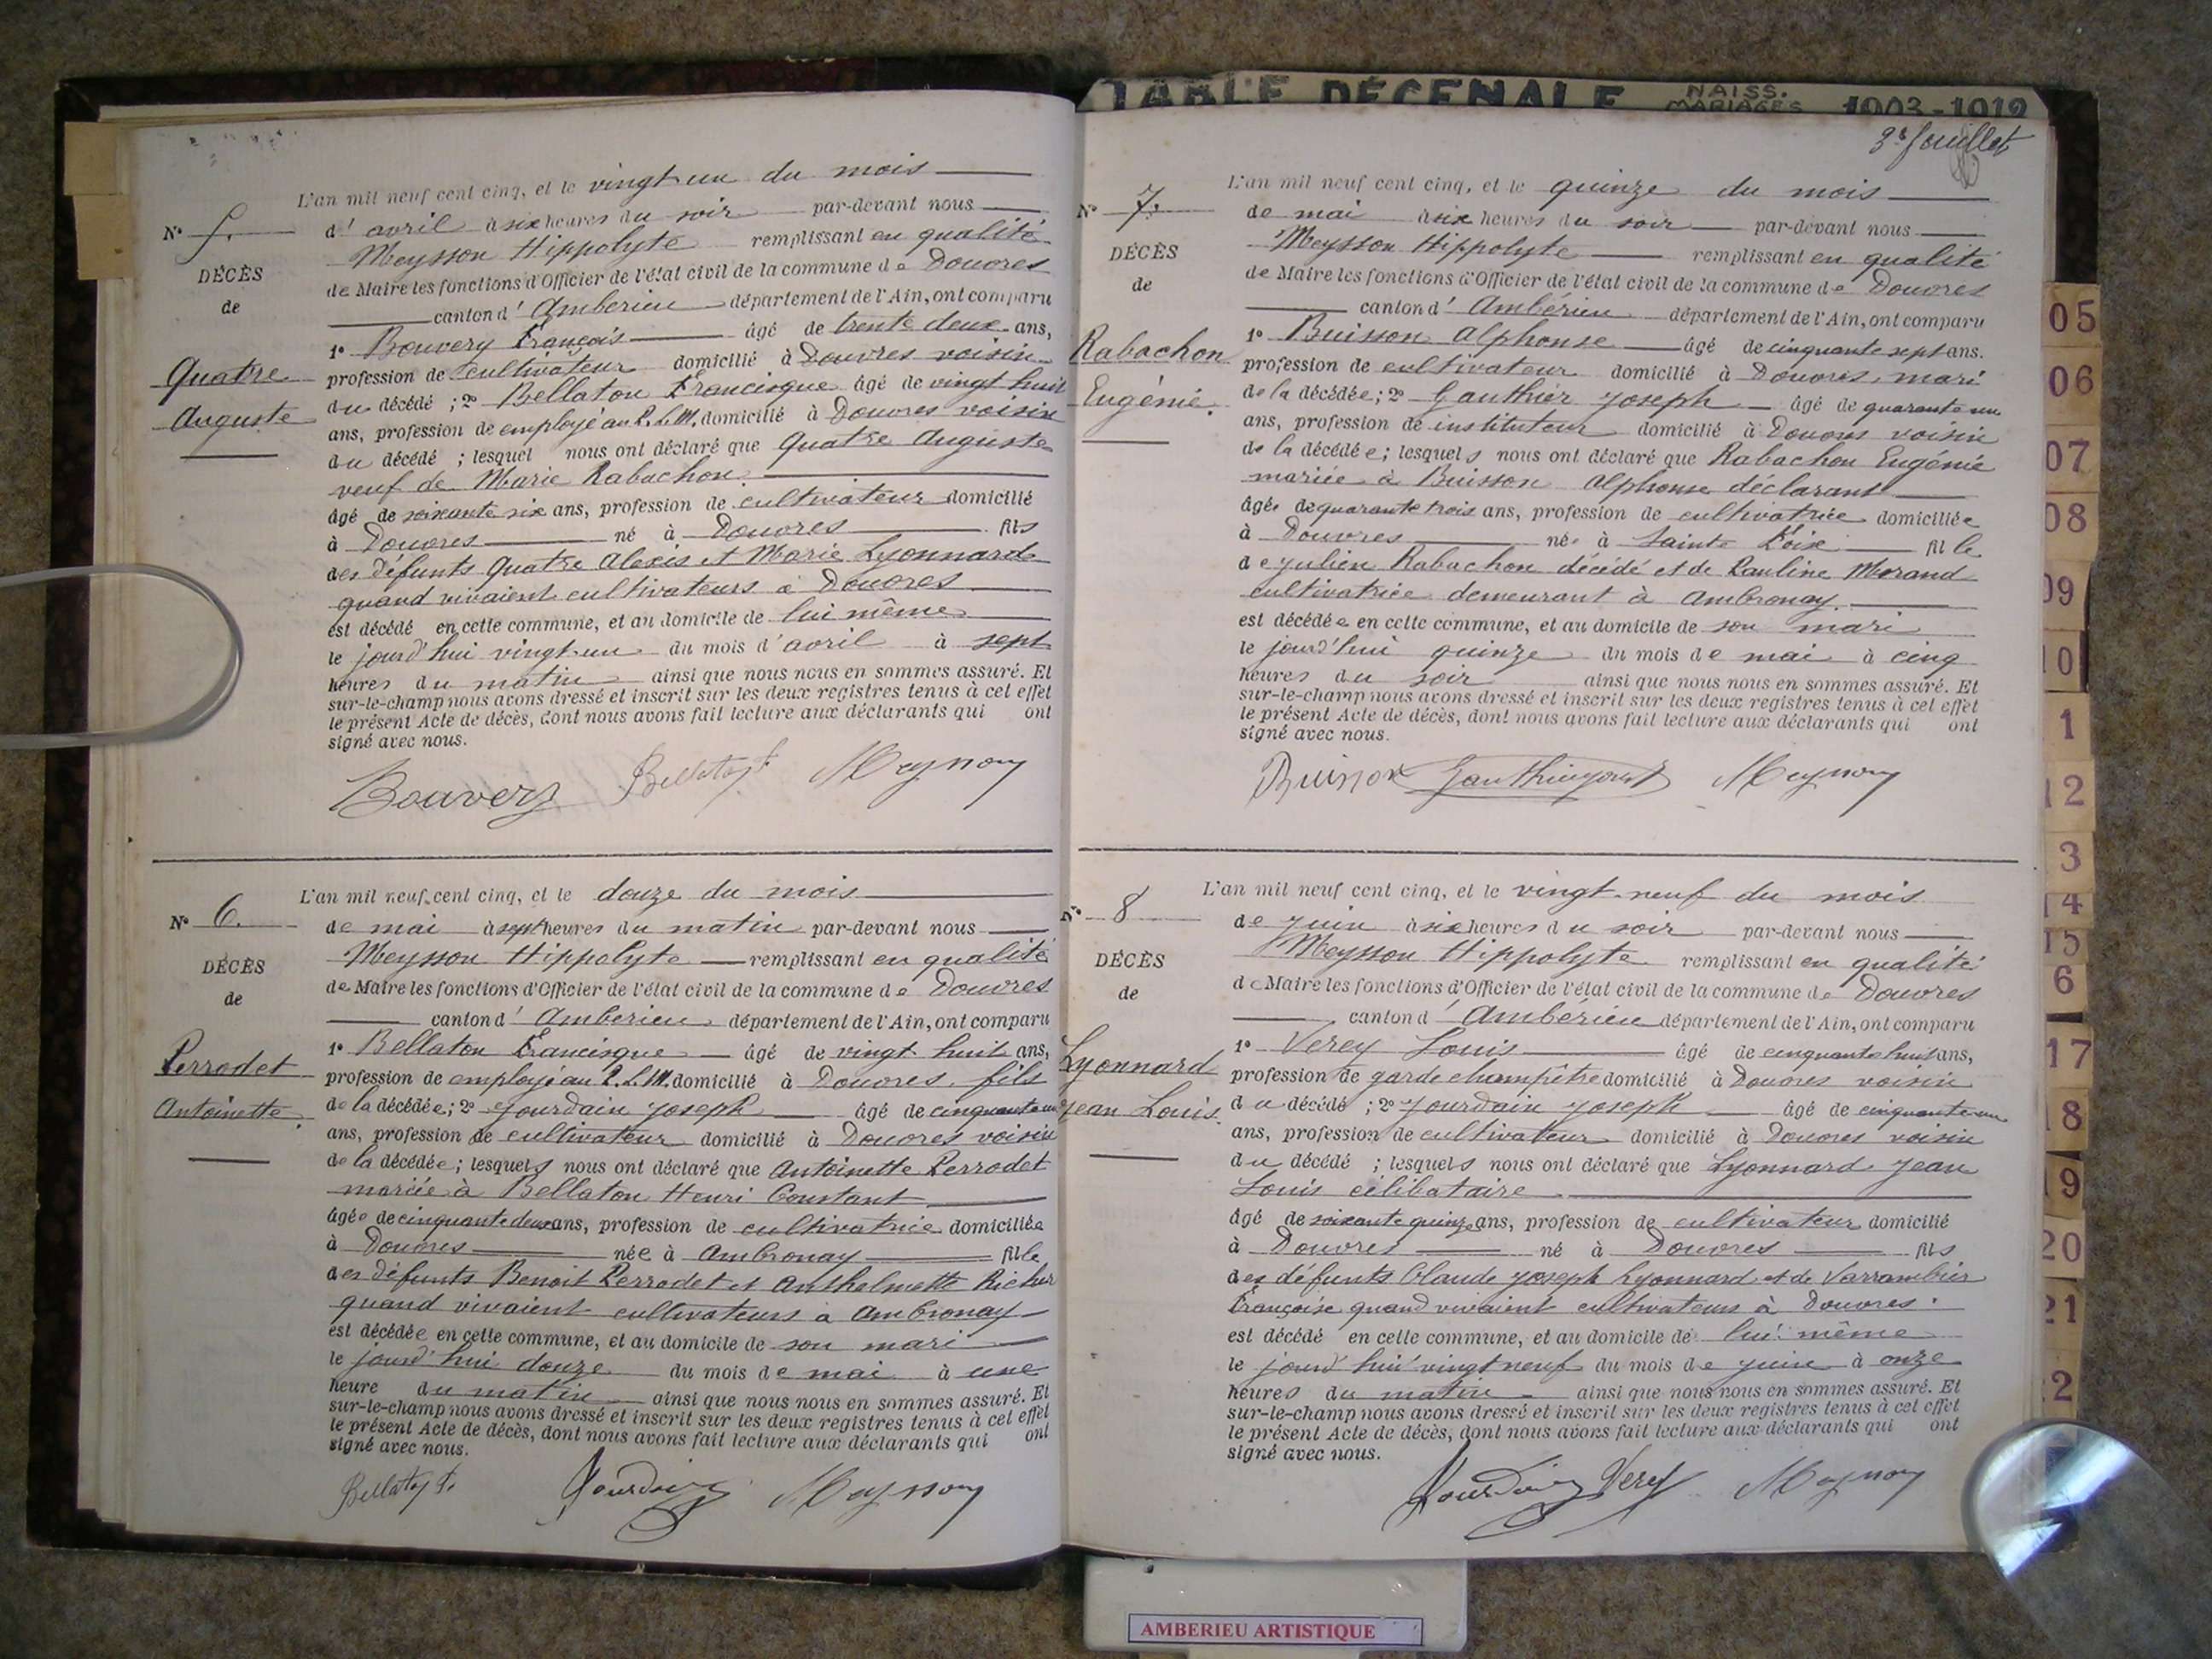 TABLE DÉCENALE NAISS. MARIAGES 1903-1912
N° 5.
DÉCÈS
de
Quatre
Auguste
L'an mil neuf cent cinq, et le vingt un du mois
d'avril à six heures du soir par-devant nous
Meysson Hippolyte remplissant en qualité
de Maire les fonctions d'Officier de l'état civil de la commune de Douvres
canton d'Ambérieu département de l'Ain, ont comparu
1° Bouvery François âgé de trente deux ans,
profession de cultivateur domicilié à Douvres voisin
du décédé ; 2° Bellaton Francisque âgé de vingt huit
ans, profession de employé au P.L.M. domicilié à Douvres voisin
du décédé ; lesquel nous ont déclaré que Quatre Auguste
veuf de Marie Rabachon
âgé de soixante six ans, profession de cultivateur domicilié
à Douvres né à Douvres fils
des défunts Quatre Alexis et Marie Lyonnard
quand vivaient cultivateurs à Douvres
est décédé en cette commune, et au domicile de lui même
le jourd'hui vingt un du mois d'avril à sept
heures du matin ainsi que nous nous en sommes assuré. Et
sur-le-champ nous avons dressé et inscrit sur les deux registres tenus à cet effet
le présent Acte de décès, dont nous avons fait lecture aux déclarants qui ont
signé avec nous.
Bouvery Bellaton f Meysson
N° 6.
DÉCÈS
de
Perrodet
Antoinette.
L'an mil neuf cent cinq, et le douze du mois
de mai à sept heures du matin par-devant nous
Meysson Hippolyte remplissant en qualité
de Maire les fonctions d'Officier de l'état civil de la commune de Douvres
canton d'Ambérieu département de l'Ain, ont comparu
1° Bellaton Francisque âgé de vingt huit ans,
profession de employé au P.L.M. domicilié à Douvres, fils
de la décédée; 2° Jourdain Joseph âgé de cinquante un
ans, profession de cultivateur domicilié à Douvres voisin
de la décédée; lesquels nous ont déclaré que Antoinette Perrodet
mariée à Bellaton Henri Constant
âgée de cinquante deux ans, profession de cultivatrice domiciliée
à Douvres née à Ambronay fille
des défunts Benoit Perrodet et Anthelmette Richer
quand vivaient cultivateurs à Ambronay
est décédée en cette commune, et au domicile de son mari
le jourd'hui douze du mois de mai à une
heure du matin ainsi que nous nous en sommes assuré. Et
sur-le-champ nous avons dressé et inscrit sur les deux registres tenus à cet effet
le présent Acte de décès, dont nous avons fait lecture aux déclarants qui ont
signé avec nous.
Bellaton f. Jourdain Meysson
3e feuillet
N° 7.
DÉCÈS
de
Rabachon
Eugénie.
L'an mil neuf cent cinq, et le quinze du mois
de mai à six heures du soir par-devant nous
Meysson Hippolyte remplissant en qualité
de Maire les fonctions d'Officier de l'état civil de la commune de Douvres
canton d'Ambérieu département de l'Ain, ont comparu
1° Buisson Alphonse âgé de cinquante sept ans.
profession de cultivateur domicilié à Douvres, mari
de la décédée; 2° Gauthier Joseph âgé de quarante un
ans, profession de instituteur domicilié à Douvres voisin
de la décédée; lesquels nous ont déclaré que Rabachon Eugénie
mariée à Buisson Alphonse déclarant
âgée de quarante trois ans, profession de cultivatrice domiciliée
à Douvres née à Sainte Foix fille
de Julien Rabachon décédé et de Pauline Morand
cultivatrice demeurant à Ambronay.
est décédée en cette commune, et au domicile de son mari
le jourd'hui quinze du mois de mai à cinq
heures du soir ainsi que nous nous en sommes assuré. Et
sur-le-champ nous avons dressé et inscrit sur les deux registres tenus à cet effet
le présent Acte de décès, dont nous avons fait lecture aux déclarants qui ont
signé avec nous.
Buisson Gauthier Joseph Meysson
N° 8
DÉCÈS
de
Lyonnard
Jean Louis.
L'an mil neuf cent cinq, et le vingt-neuf du mois
de juin à six heures du soir par-devant nous
Meysson Hippolyte remplissant en qualité
de Maire les fonctions d'Officier de l'état civil de la commune de Douvres
canton d'Ambérieu département de l'Ain, ont comparu
1° Verey Louis âgé de cinquante huit ans,
profession de garde champêtre domicilié à Douvres voisin
du décédé ; 2° Jourdain Joseph âgé de cinquante un
ans, profession de cultivateur domicilié à Douvres voisin
du décédé ; lesquels nous ont déclaré que Lyonnard Jean
Louis célibataire
âgé de soixante quinze ans, profession de cultivateur domicilié
à Douvres né à Douvres fils
des défunts Claude Joseph Lyonnard et de Varrambier
Françoise quand vivaient cultivateurs à Douvres.
est décédé en cette commune, et au domicile de lui même
le jourd'hui vingt neuf du mois de juin à onze
heures du matin ainsi que nous nous en sommes assuré. Et
sur-le-champ nous avons dressé et inscrit sur les deux registres tenus à cet effet
le présent Acte de décès, dont nous avons fait lecture aux déclarants qui ont
signé avec nous.
Jourdain Verey Meysson
05
06
07
08
09
10
1
12
3
14
15
6
17
18
19
20
21
2
AMBERIEU ARTISTIQUE